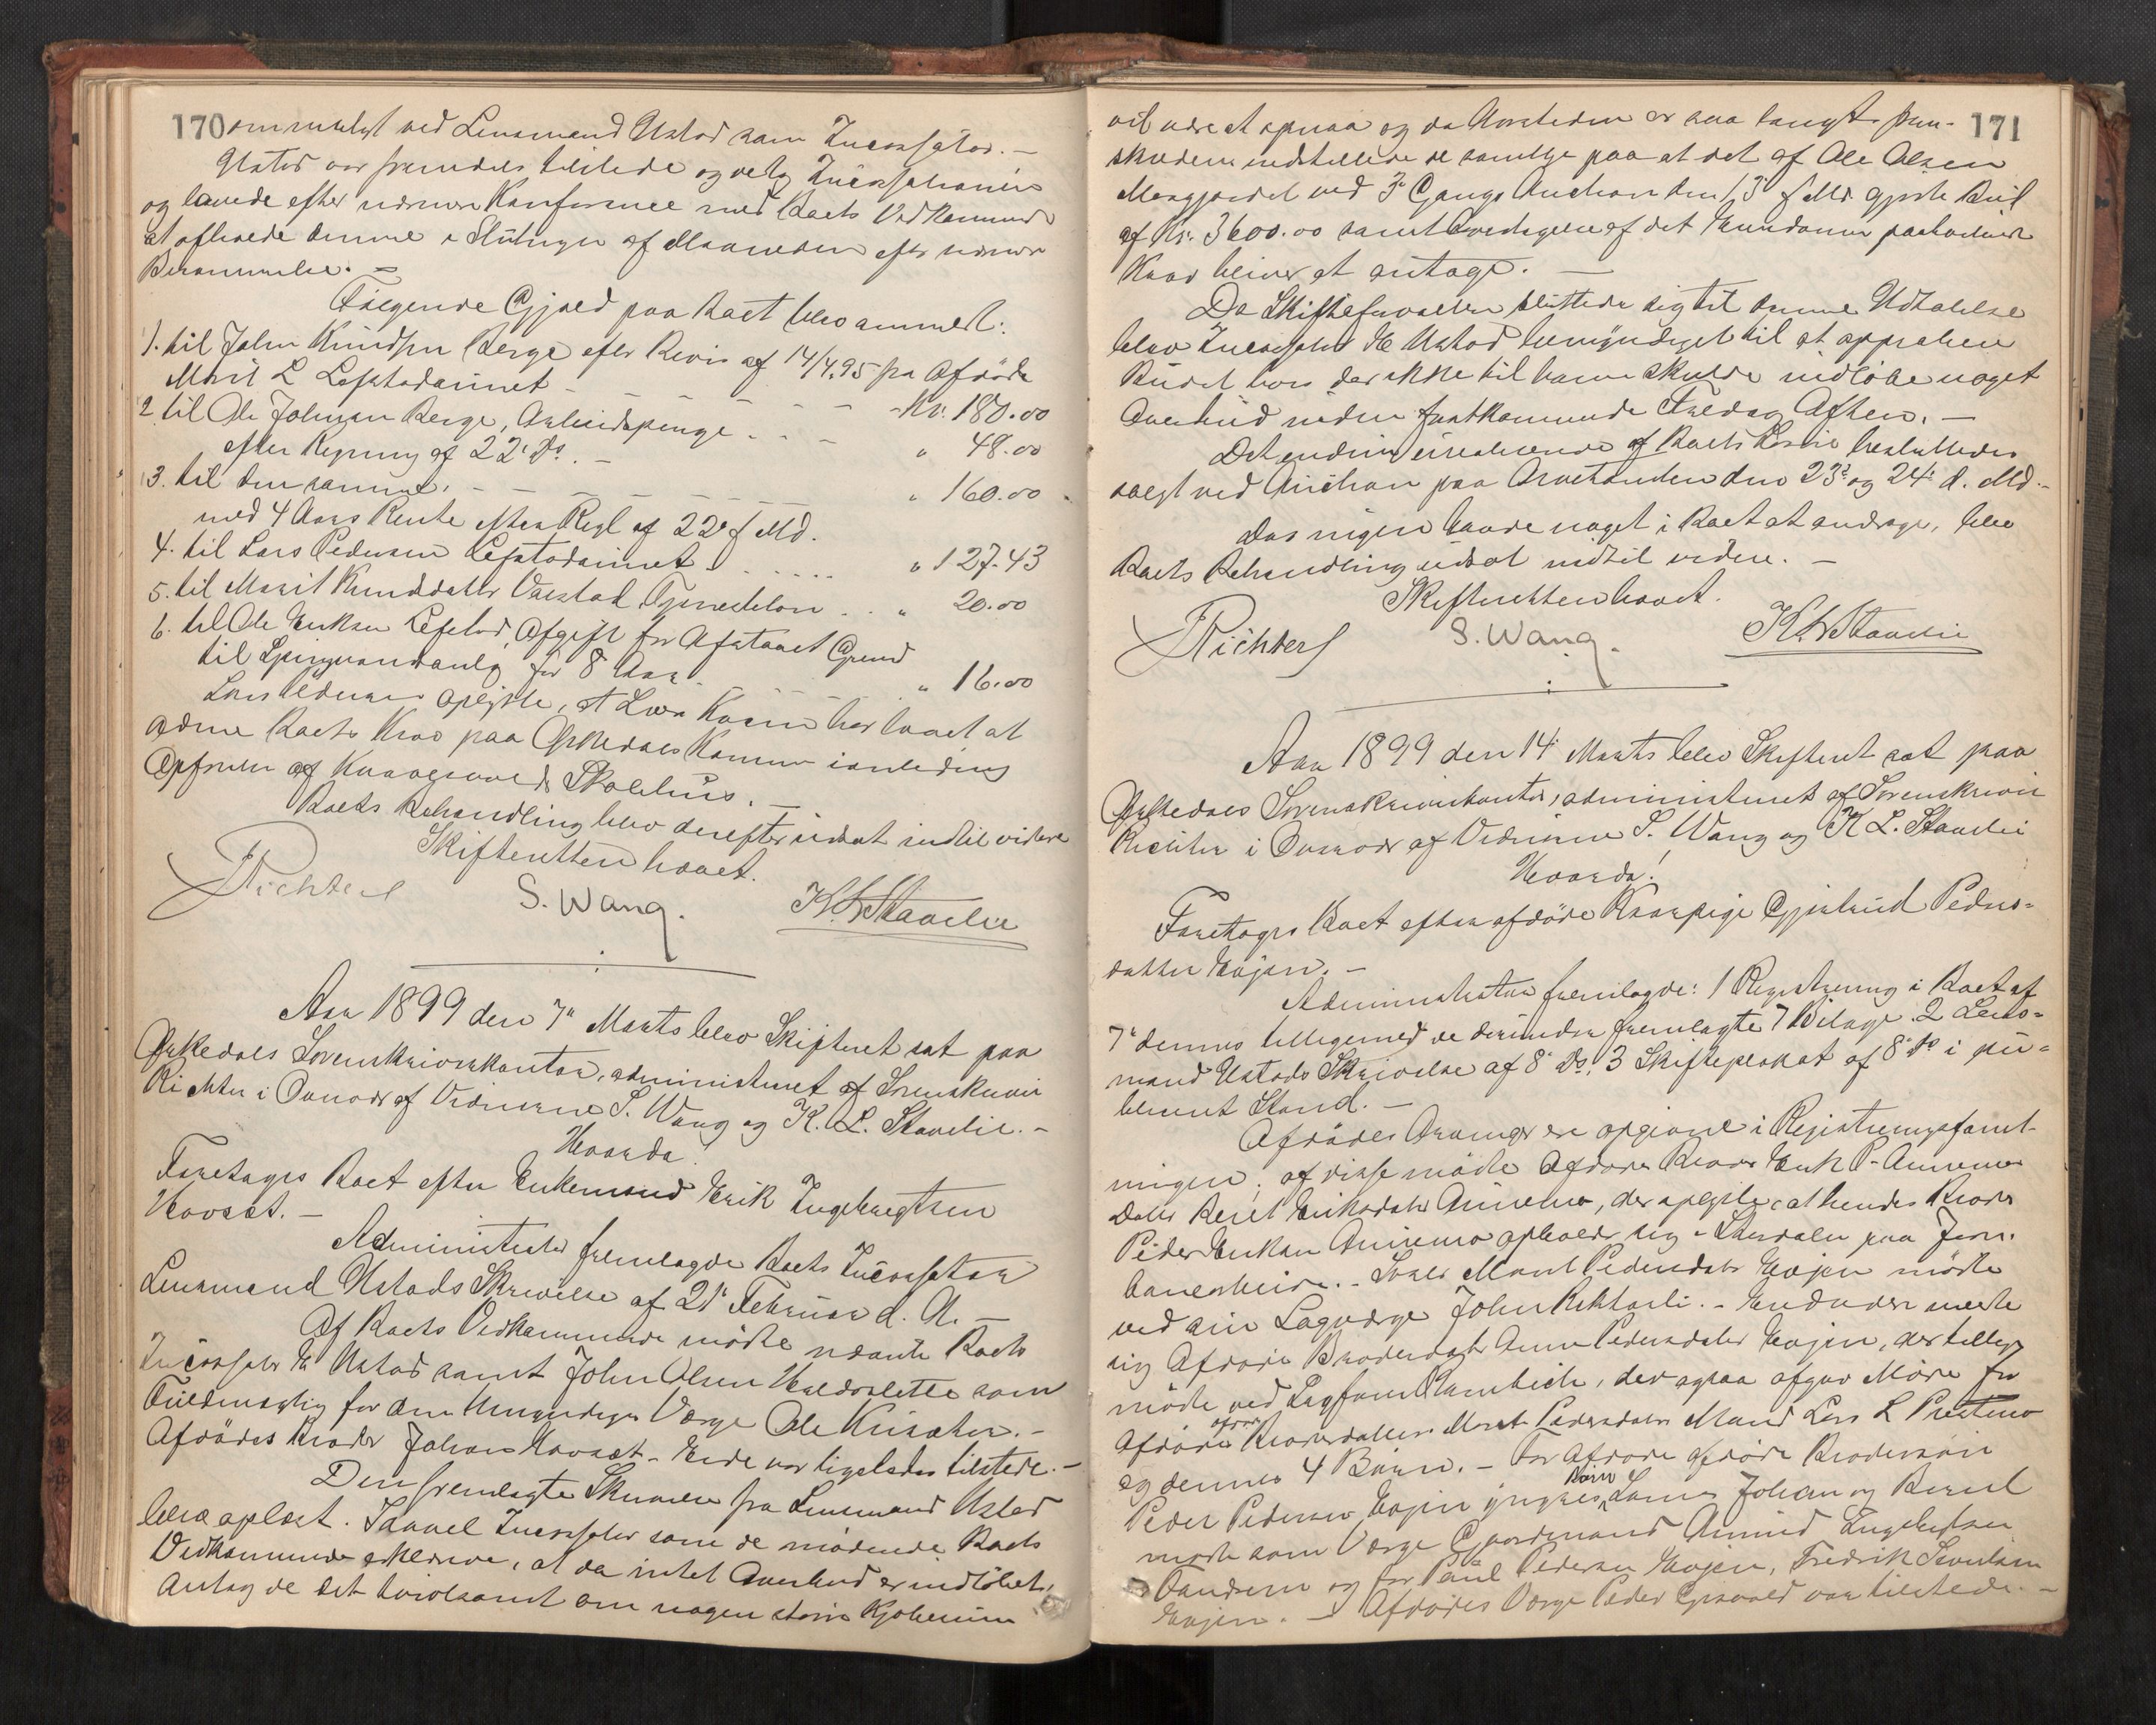 170
ommeligst ved Lensmand Ustad som Incassator.-
Ustad var fremdeles tilstede og vedtog Incassationen
og lovede efter nærmere Konference med Boets Vedkommende
at afslutte denne i Slutningen af Maaneden efter nærmere
Berammelse.
Følgende Gjæld paa Boet blev anmeldt:
1. til John Knudsen Berge efter Bevis af 14/4.95 fra Afdøde
Marit L Lefstadaunet - - - - - Kr. 180.00
2 til Ole Johnsen Berge, Arbeidspenge . . - " 48.00
efter Regning af 22' Ds. -
3. til den samme. - - - - - - " 160.00
med 4 Aars Rente efter Regl af 22' f Md.
4. til Lars Pedersen Lefstadaunet . . . . . " 127.43
5. til Marit Knudsdatter Vaistad Tjenesteløn . . " 20.00
6. til Ole Eriksen Lefstad, Afgift for Afstaaet Grund
til for 8 Aar - - - - " 16.00
Lars Pedersen oplyste, at have lovet at
ordne Boets Krav paa Orkedals Kommune i anledning
Opførelsen af Skolehus. -
Boets Behandling blev derefter udsat indtil videre
Skifteretten hævet.
Richter S. Wang. K. L. Stavelie
Aar 1899 den 7de Marts blev Skifteret sat paa
Orkedals Sorenskriverkontor, administreret af Sorenskriver
Richter i Overvær af Vidnerne S. Wang og K. L. Stavelie. -
Hvorda!
Foretages Boet efter Enkemand Erik Ingebrigtsen
Hovset. -
Administrator fremlagde Boets Incassator
Lensmand Ustads Skrivelse af 21de Februar d. A. -
Af Boets Vedkommende mødte nævnte Boets
Incassator E Ustad samt John Olsen som
Fuldmægtig for den Umyndiges Værge Ole -
Afdødes Broder Johan Hovset- Eide var ligeledes tilstede. -
Den fremlagte Skrivelse fra Lensmand Ustad
blev oplæst. Saavel Incassator som de mødende Boets
Vedkommende erklærede, at da intet Overbud er indløbet,
Antog de det tvivlsomt om nogen større Kjøbesum
171
vil være at opnaa og da Aarstiden er saa langt frem-
skreden indstillede de samtlige paa at det af Ole Olsen
Mosgjerdet ved 3' Gangs Auction den 13' f Md. gjorte Bud
af Kr. 3600.00 samt Overtagelse af det Eiendommen paahvilende
Kaar bliver at antage. -
Da Skifteforvalteren sluttede sig til denne Udtalelse
blev Incassator E Ustad bemyndiget til at approbere
Budet hvis der ikke til ham skulde indløbe noget
Overbud inden førstkommende Fredag Aften. -
Det endnu urealiserede af Boets Løsøre besluttedes
solgt ved Auction paa Aastedet den 23de og 24de d. Md. -
Da ingen havde noget i Boet at andrage, blev
Boets Behandling udsat indtil videre. -
Skifteretten hævet.
Richter S. Wang. K. L. Stavelie
Aar 1899 den 14' Marts blev Skifteret sat paa
Orkedals Sorenskriverkontor, administreret af Sorenskriver
Richter i Overvær af Vidnerne S. Wang og K L. Stavelie
Hvorda!
Foretages Boet efter afdøde Kaarpige Gjertrud Peders-
datter Evjen. -
Administrator fremlagde: 1 Registrering i Boet af
7de dennes tilligemed de derunder fremlagte 7 Bilage 2 Lens-
mand Ustads Skrivelse af 8' Ds. 3 Skifteplakat af 8' Ds i pu-
bliceret Stand. -
Afdødes Arvinger ere opgivne i Registreringsforret-
ningen; af disse mødte Afdødes Broder Erik P. Annemo
Datter Beret Eriksdatter Annemo, der oplyste at hendes Broder
Peder Eriksen Annemo opholder sig i paa Jern-
banearbeide. - Marit Pedersdatter Evjen mødte
ved sin Lagværge John . - Endvidere meldte
sig Afdødes Broderdatter Anne Pedersdatter Evjen, der tillige
mødte ved Sagfører , der ogsaa afgav Møde for
Afdødes afdøde Broderdatter Marit Pedersdatters Mand Lars L
og dennes 4 Børn. - For Afdødes afdøde Brodersøn
Peder Pedersen Evjen yngres Børn Johan og Beret
mødte som Værge Gaardmand Engebretsen
og for Paul Pedersen Evjen, Fredrik
Evjen. - Afdødes Værge Peder var tilstede. -